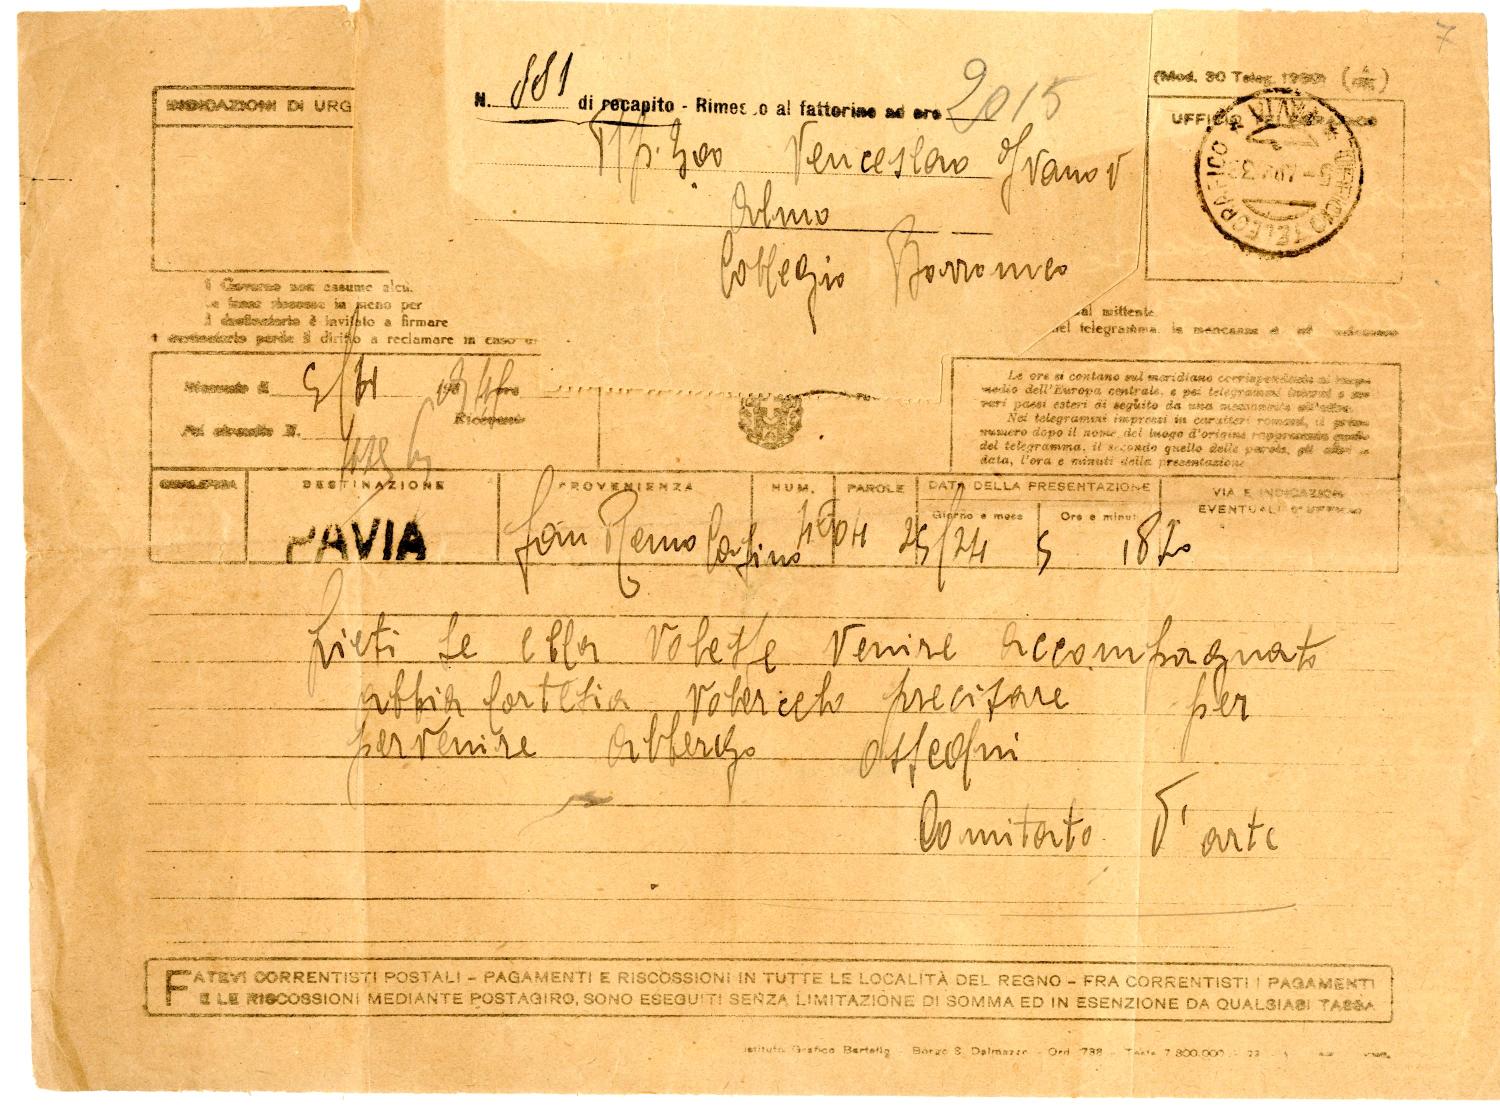 7
N. 881 di recapito - Rimesso al fattorino ad ore 2015
Venceslao Ivanov
Almo
Collegio Borromeo
INDICAZIONI DI URG
(Mod. 30 Teleg. 1930)
UFFICIO TELEGRAFICO
UFFICIO TELEGRAFICO PAVIA
Il Governo non assume alcu
le tasse riscosse in meno per
Il destinatario è invitato a firmare
Il destinatario perde il diritto a reclamare in caso di
dal mittente
nel telegramma, la mancanza
Ricevuto il 5/
Pel circuito N.
Ricevente
Le ore si contano sul meridiano corrispondente al tempo
medio dell'Europa centrale, e pei telegrammi interni e
vari paesi esteri di seguito da una mezzanotte all'altra.
Nei telegrammi impressi in caratteri romani, il primo
numero dopo il nome del luogo d'origine rappresenta quello
del telegramma, il secondo quello delle parole, gli altri la
data, l'ora e minuti della presentazione
QUALIFICA DESTINAZIONE PROVENIENZA NUM. PAROLE DATA DELLA PRESENTAZIONE VIA E INDICAZIONI
Giorno e mese Ore e minuti EVENTUALI D'UFFICIO
PAVIA San Remo Casino 25/24 5 18
Lieti se ella volesse venire accompagnato
abbia cortesia volercelo precisare per
pervenire albergo ossequi
Comitato d'arte
FATEVI CORRENTISTI POSTALI - PAGAMENTI E RISCOSSIONI IN TUTTE LE LOCALITÀ DEL REGNO - FRA CORRENTISTI I PAGAMENTI
E LE RISCOSSIONI MEDIANTE POSTAGIRO, SONO ESEGUITI SENZA LIMITAZIONE DI SOMMA ED IN ESENZIONE DA QUALSIASI TASSA
Istituto Grafico Bertello - Borgo S. Dalmazzo - Ord. 788 - 7.800.000